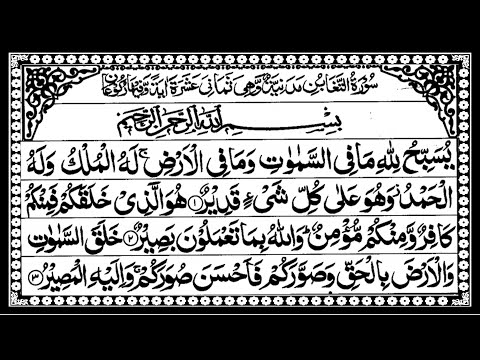 سُوْرَةُ التَّغَابُنِ مَدَنِيَّةٌ وَّهِيَ ثَمَانِيَ عَشَرَةَ اٰيَةً وَّفِيْهَا رُكُوْعَانِ
بِسْمِ اللهِ الرَّحْمٰنِ الرَّحِيْمِ
يُسَبِّحُ لِلّٰهِ مَا فِي السَّمٰوٰتِ وَمَا فِي الْاَرْضِ ۚ لَهُ الْمُلْكُ وَلَهُ
الْحَمْدُ ؗ وَهُوَ عَلٰى كُلِّ شَيْءٍ قَدِيْرٌ ﴿۱﴾ هُوَ الَّذِيْ خَلَقَكُمْ فَمِنْكُمْ
كَافِرٌ وَّمِنْكُمْ مُّؤْمِنٌ ؕ وَاللّٰهُ بِمَا تَعْمَلُوْنَ بَصِيْرٌ ﴿۲﴾ خَلَقَ السَّمٰوٰتِ
وَالْاَرْضَ بِالْحَقِّ وَصَوَّرَكُمْ فَاَحْسَنَ صُوَرَكُمْ ۚ وَاِلَيْهِ الْمَصِيْرُ ﴿۳﴾